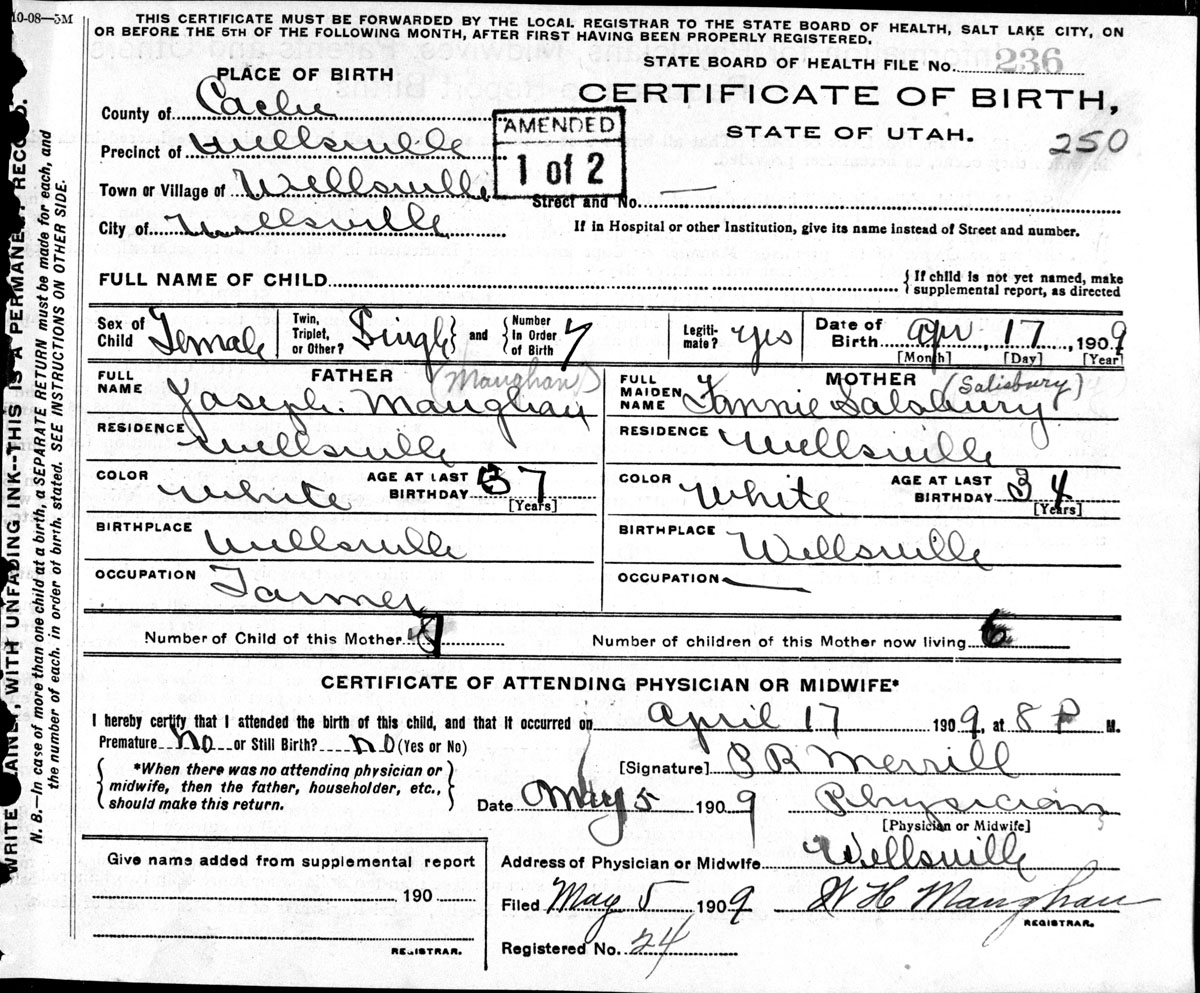 10-08—5M
THIS CERTIFICATE MUST BE FORWARDED BY THE LOCAL REGISTRAR TO THE STATE BOARD OF HEALTH, SALT LAKE CITY, ON
OR BEFORE THE 5TH OF THE FOLLOWING MONTH, AFTER FIRST HAVING BEEN PROPERLY REGISTERED.
STATE BOARD OF HEALTH FILE No. 236
PLACE OF BIRTH
CERTIFICATE OF BIRTH,
STATE OF UTAH.
250
County of Cache
AMENDED
1 of 2
Precinct of Wellsville
Town or Village of Wellsville
Street and No. —
City of Wellsville
If in Hospital or other Institution, give its name instead of Street and number.
FULL NAME OF CHILD
{If child is not yet named, make
supplemental report, as directed
Sex of Child Female
Twin, Triplet, or Other? Single} and {Number In Order of Birth 7
Legitimate? yes
Date of Birth Apr, 17, 1909
[Month] [Day] [Year]
FATHER (Maughan)
FULL NAME Joseph. Maughan
MOTHER (Salisbury)
FULL MAIDEN NAME Fannie Salsbury
RESIDENCE Wellsville
RESIDENCE Wellsville
COLOR White AGE AT LAST BIRTHDAY 37 [Years]
COLOR White AGE AT LAST BIRTHDAY 34 [Years]
BIRTHPLACE Wellsville
BIRTHPLACE Wellsville
OCCUPATION Farmer
OCCUPATION —
Number of Child of this Mother 7
Number of children of this Mother now living 6
CERTIFICATE OF ATTENDING PHYSICIAN OR MIDWIFE*
I hereby certify that I attended the birth of this child, and that it occurred on April 17 1909, at 8 P M.
Premature No or Still Birth? no (Yes or No)
{*When there was no attending physician or
midwife, then the father, householder, etc.,
should make this return.}
[Signature] P R Merrill
Date May 5 1909 Physician
[Physician or Midwife]
Give name added from supplemental report
190
REGISTRAR.
Address of Physician or Midwife Wellsville
Filed May 5 1909 W H Maughan
REGISTRAR.
Registered No. 24
WRITE PLAINLY, WITH UNFADING INK--THIS IS A PERMANENT RECORD.
N. B.—In case of more than one child at a birth, a SEPARATE RETURN must be made for each, and
the number of each, in order of birth, stated. SEE INSTRUCTIONS ON OTHER SIDE.